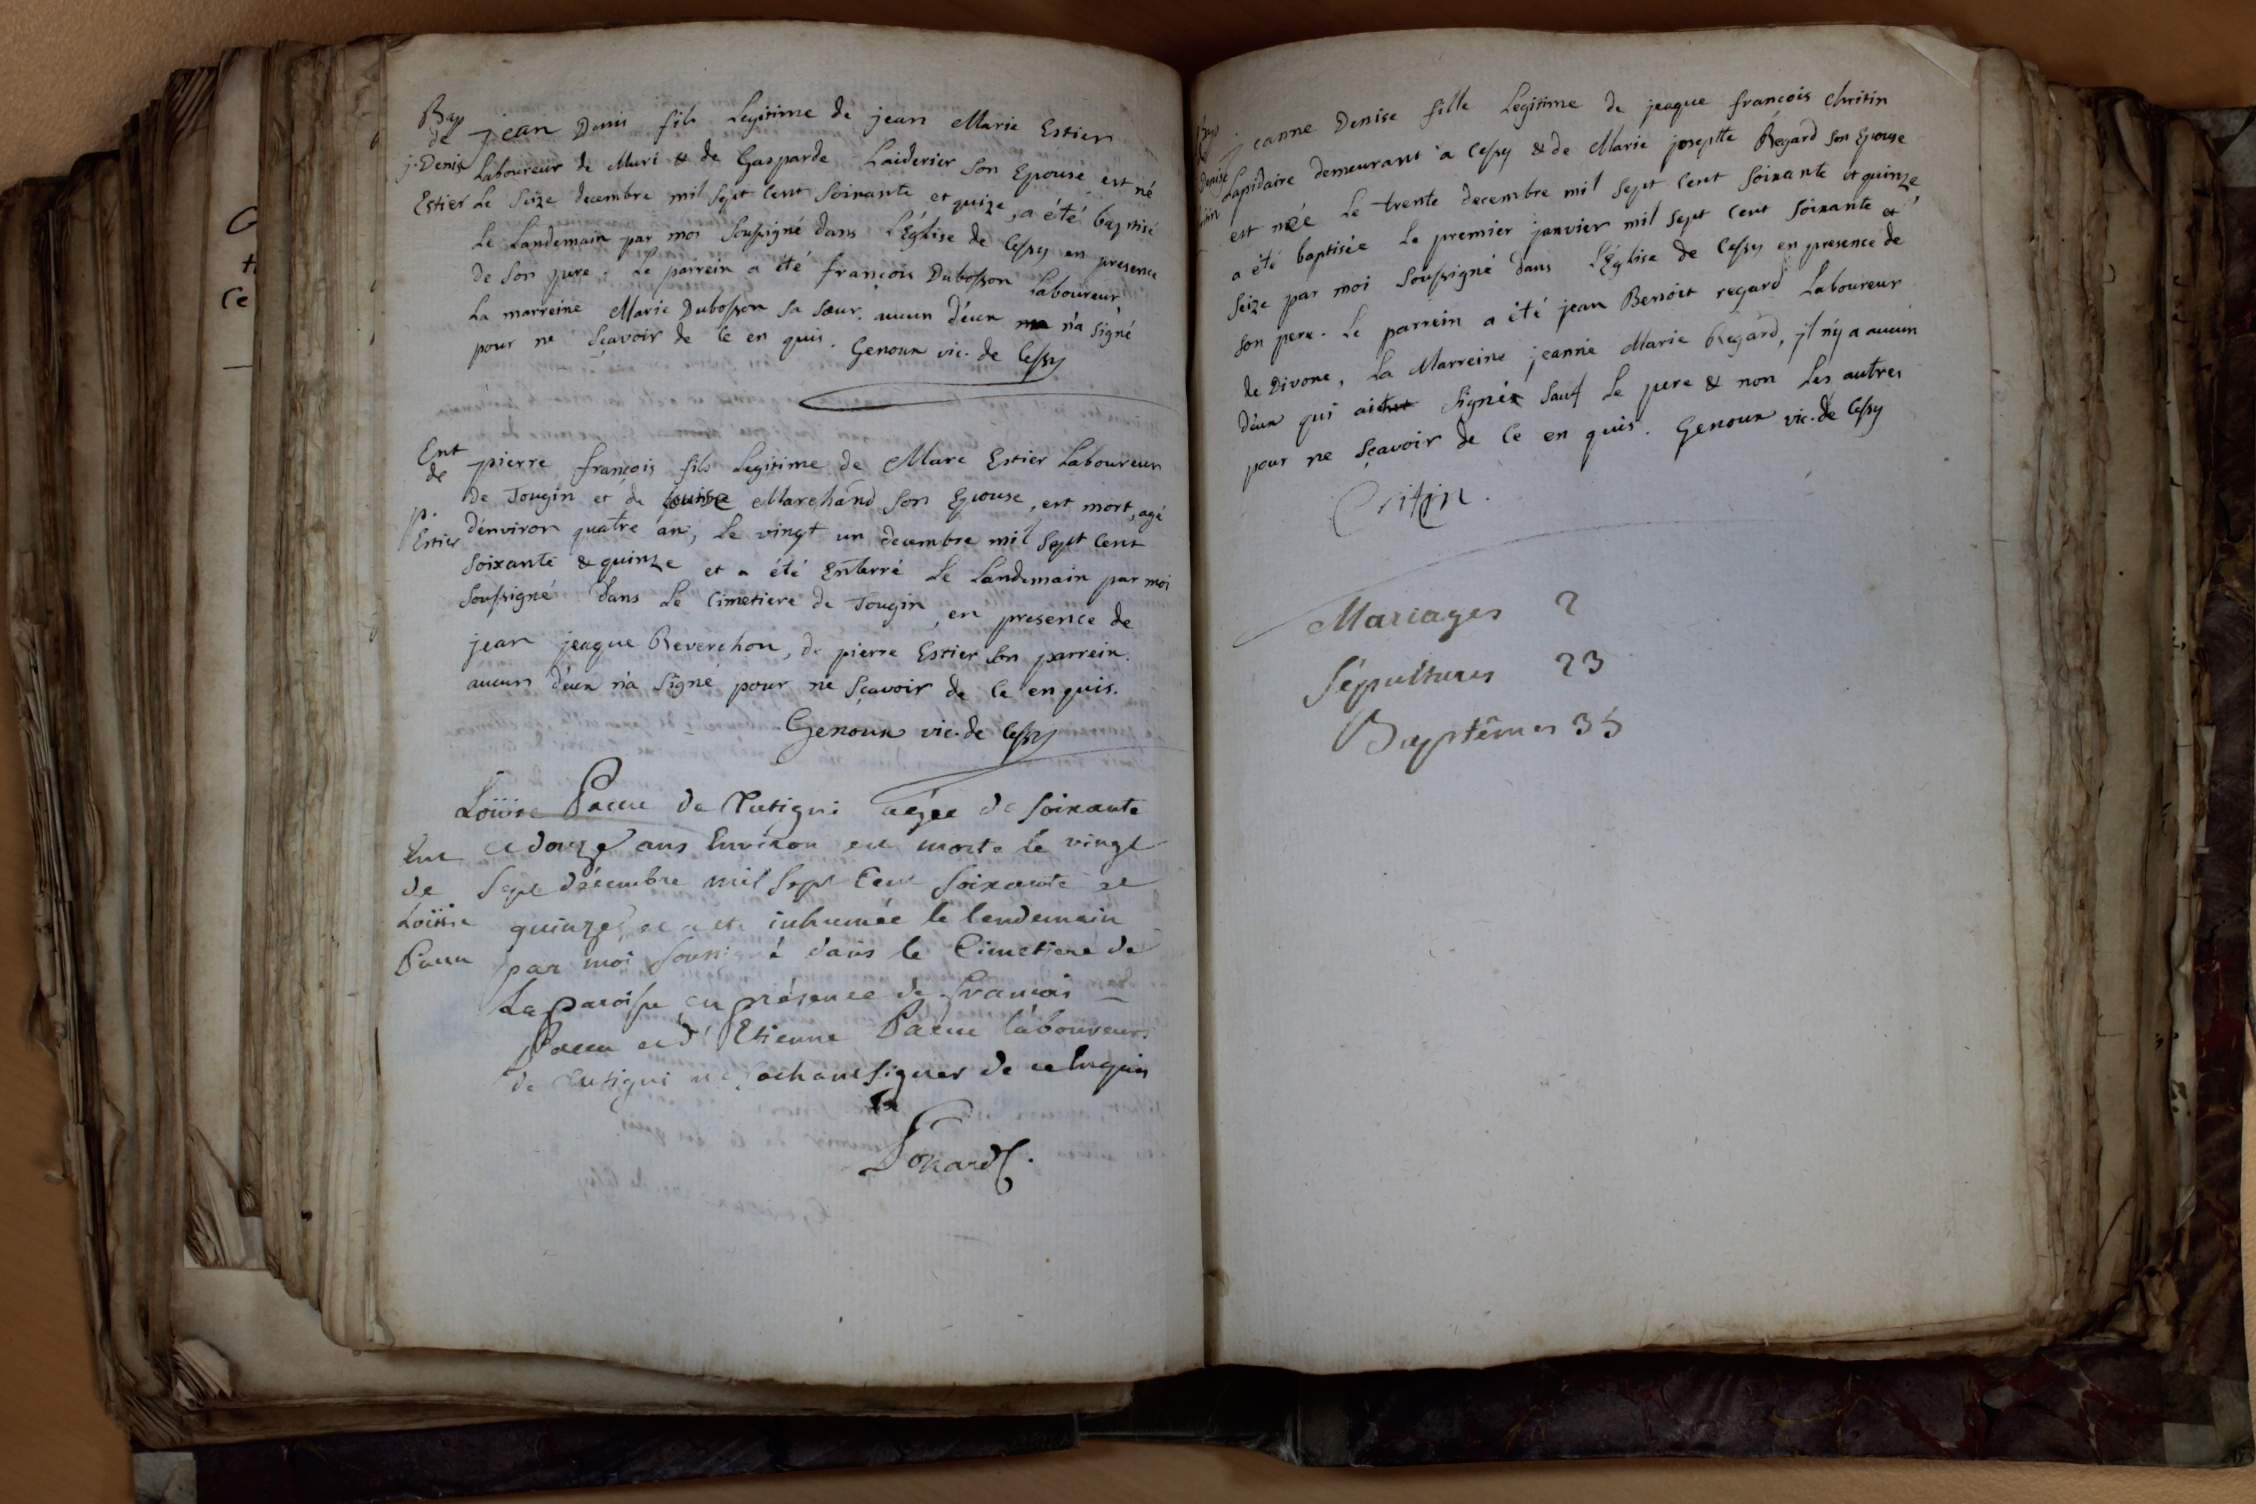 Bap
de
j. Denis
Estier
jean Denis fils Legitime de jean Marie Estier
Laboureur de Muri & de Gasparde Laiderier son Epouse est né
Le seize decembre mil sept cent soixante et quize, a été baptisé
Le Landemain par moi soussigné dans L'Église de Cessy en presence
de son pere. Le parrein a été françois Dubosson Laboureur
La marreine Marie Dubosson sa sœur. aucun d'eux n'a signé
pour ne sçavoir de ce en quis. Genoux vic. de Cessy
Ent
de
p.
Estier
pierre françois fils Legitime de Marc Estier Laboureur
de Tougin et de Louise Marchand son Epouse, est mort, agé
d'environ quatre an, Le vingt un decembre mil sept cent
soixante & quinze et a été Enterré Le Landemain par moi
soussigné dans Le Cimetiere de Tougin, en presence de
jean jeaque Reverchon, de pierre Estier son parrein.
aucun d'eux n'a signé pour ne sçavoir de ce en quis.
Genoux vic. de Cessy
Ent
de
Loüise
Pacou
Loüise de agée de soixante
et douze ans Environ est morte le vingt
sept décembre mil sept Cent soixante et
quinze, et a été inhumée le lendemain
par moi soussigné dans le Cimetiere de
La paroisse en présence de francois
et d'Etienne laboureurs
de ne sachant signer de ce Enquis
C
t
Ce
Bap
Denise
jeanne Denise fille Légitime de jeaque françois Chritin
Lapidaire demeurant à Cessy & de Marie josepthe Regard son Epouse
est née Le trente decembre mil sept cent soixante et quinze
a été baptisée Le premier janvier mil sept cent soixante et
seize par moi soussigné dans L'Église de Cessy en presence de
son pere. Le parrein a été jean Benoist regard Laboureur
de Divone, La Marreine jeanne Marie Regard, jl n'y a aucun
d'eux qui ait signé sauf Le pere & non Les autres
pour ne sçavoir de ce en quis. Genoux vic. de Cessy
Critin.
Mariages 2
Sépultures 23
Baptêmes 35